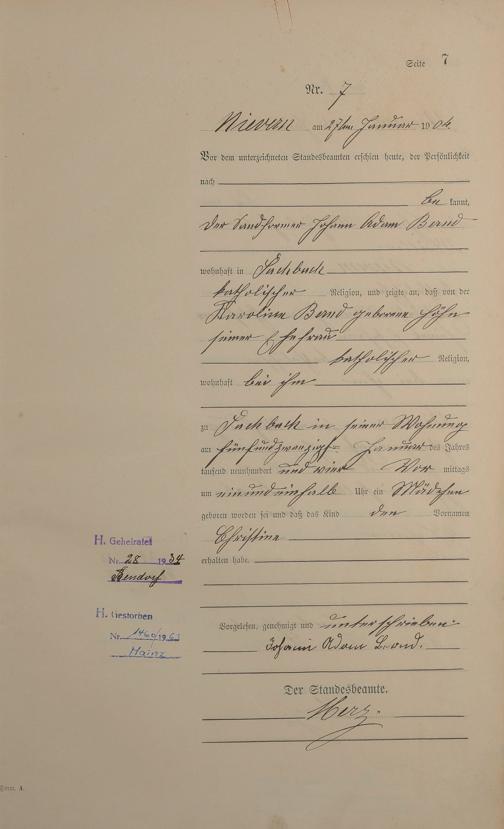 Seite 7
Nr. 7
Nievern am 27ten Januar 1904.
Vor dem unterzeichneten Standesbeamten erschien heute, der Persönlichkeit
nach
be kannt,
der Sandformer Johann Adam Band
wohnhaft in Fachbach
katholischer Religion, und zeigte an, daß von der
Karolina Band geborene Höhn
seiner Ehefrau
katholischer Religion,
wohnhaft bei ihm
zu Fachbach in seiner Wohnung
am fünfundzwanzigsten Januar des Jahres
tausend neunhundert und vier Vor mittags
um ein und einhalb Uhr ein Mädchen
geboren worden sei und daß das Kind den Vornamen
Christine
erhalten habe.
H. Geheiratet
Nr. 28 1934
Bendorf
H. Gestorben
Nr. 1963
Mainz
Vorgelesen, genehmigt und unterschrieben.
Johann Adam Band.
Der Standesbeamte.
Merz.
Form. A.